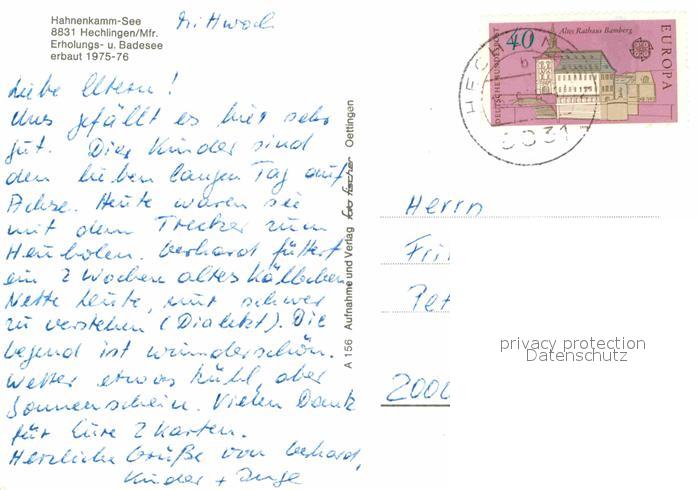 Hahnenkamm-See
8831 Hechlingen/Mfr.
Erholungs- u. Badesee
erbaut 1975-76
Mittwoch
Liebe Eltern!
Uns gefällt es hier sehr
gut. Die Kinder sind
den lieben langen Tag auf
Achse. Heute waren sie
mit dem Trecker zum
Heuholen. Gerhard füttert
ein 2 Wochen altes Kälbchen
Nette Leute, nur schwer
zu verstehen (Dialekt). Die
Gegend ist wunderschön.
Wetter etwas kühl, aber
Sonnenschein. Vielen Dank
für Eure 2 Karten.
Herzliche Grüße von Gerhard,
Kinder + Inge
A 156 Aufnahme und Verlag foto fischer Oettingen
DEUTSCHE BUNDESPOST
40
Altes Rathaus Bamberg
EUROPA
Herrn
Fri
Pet
privacy protection
Datenschutz
200